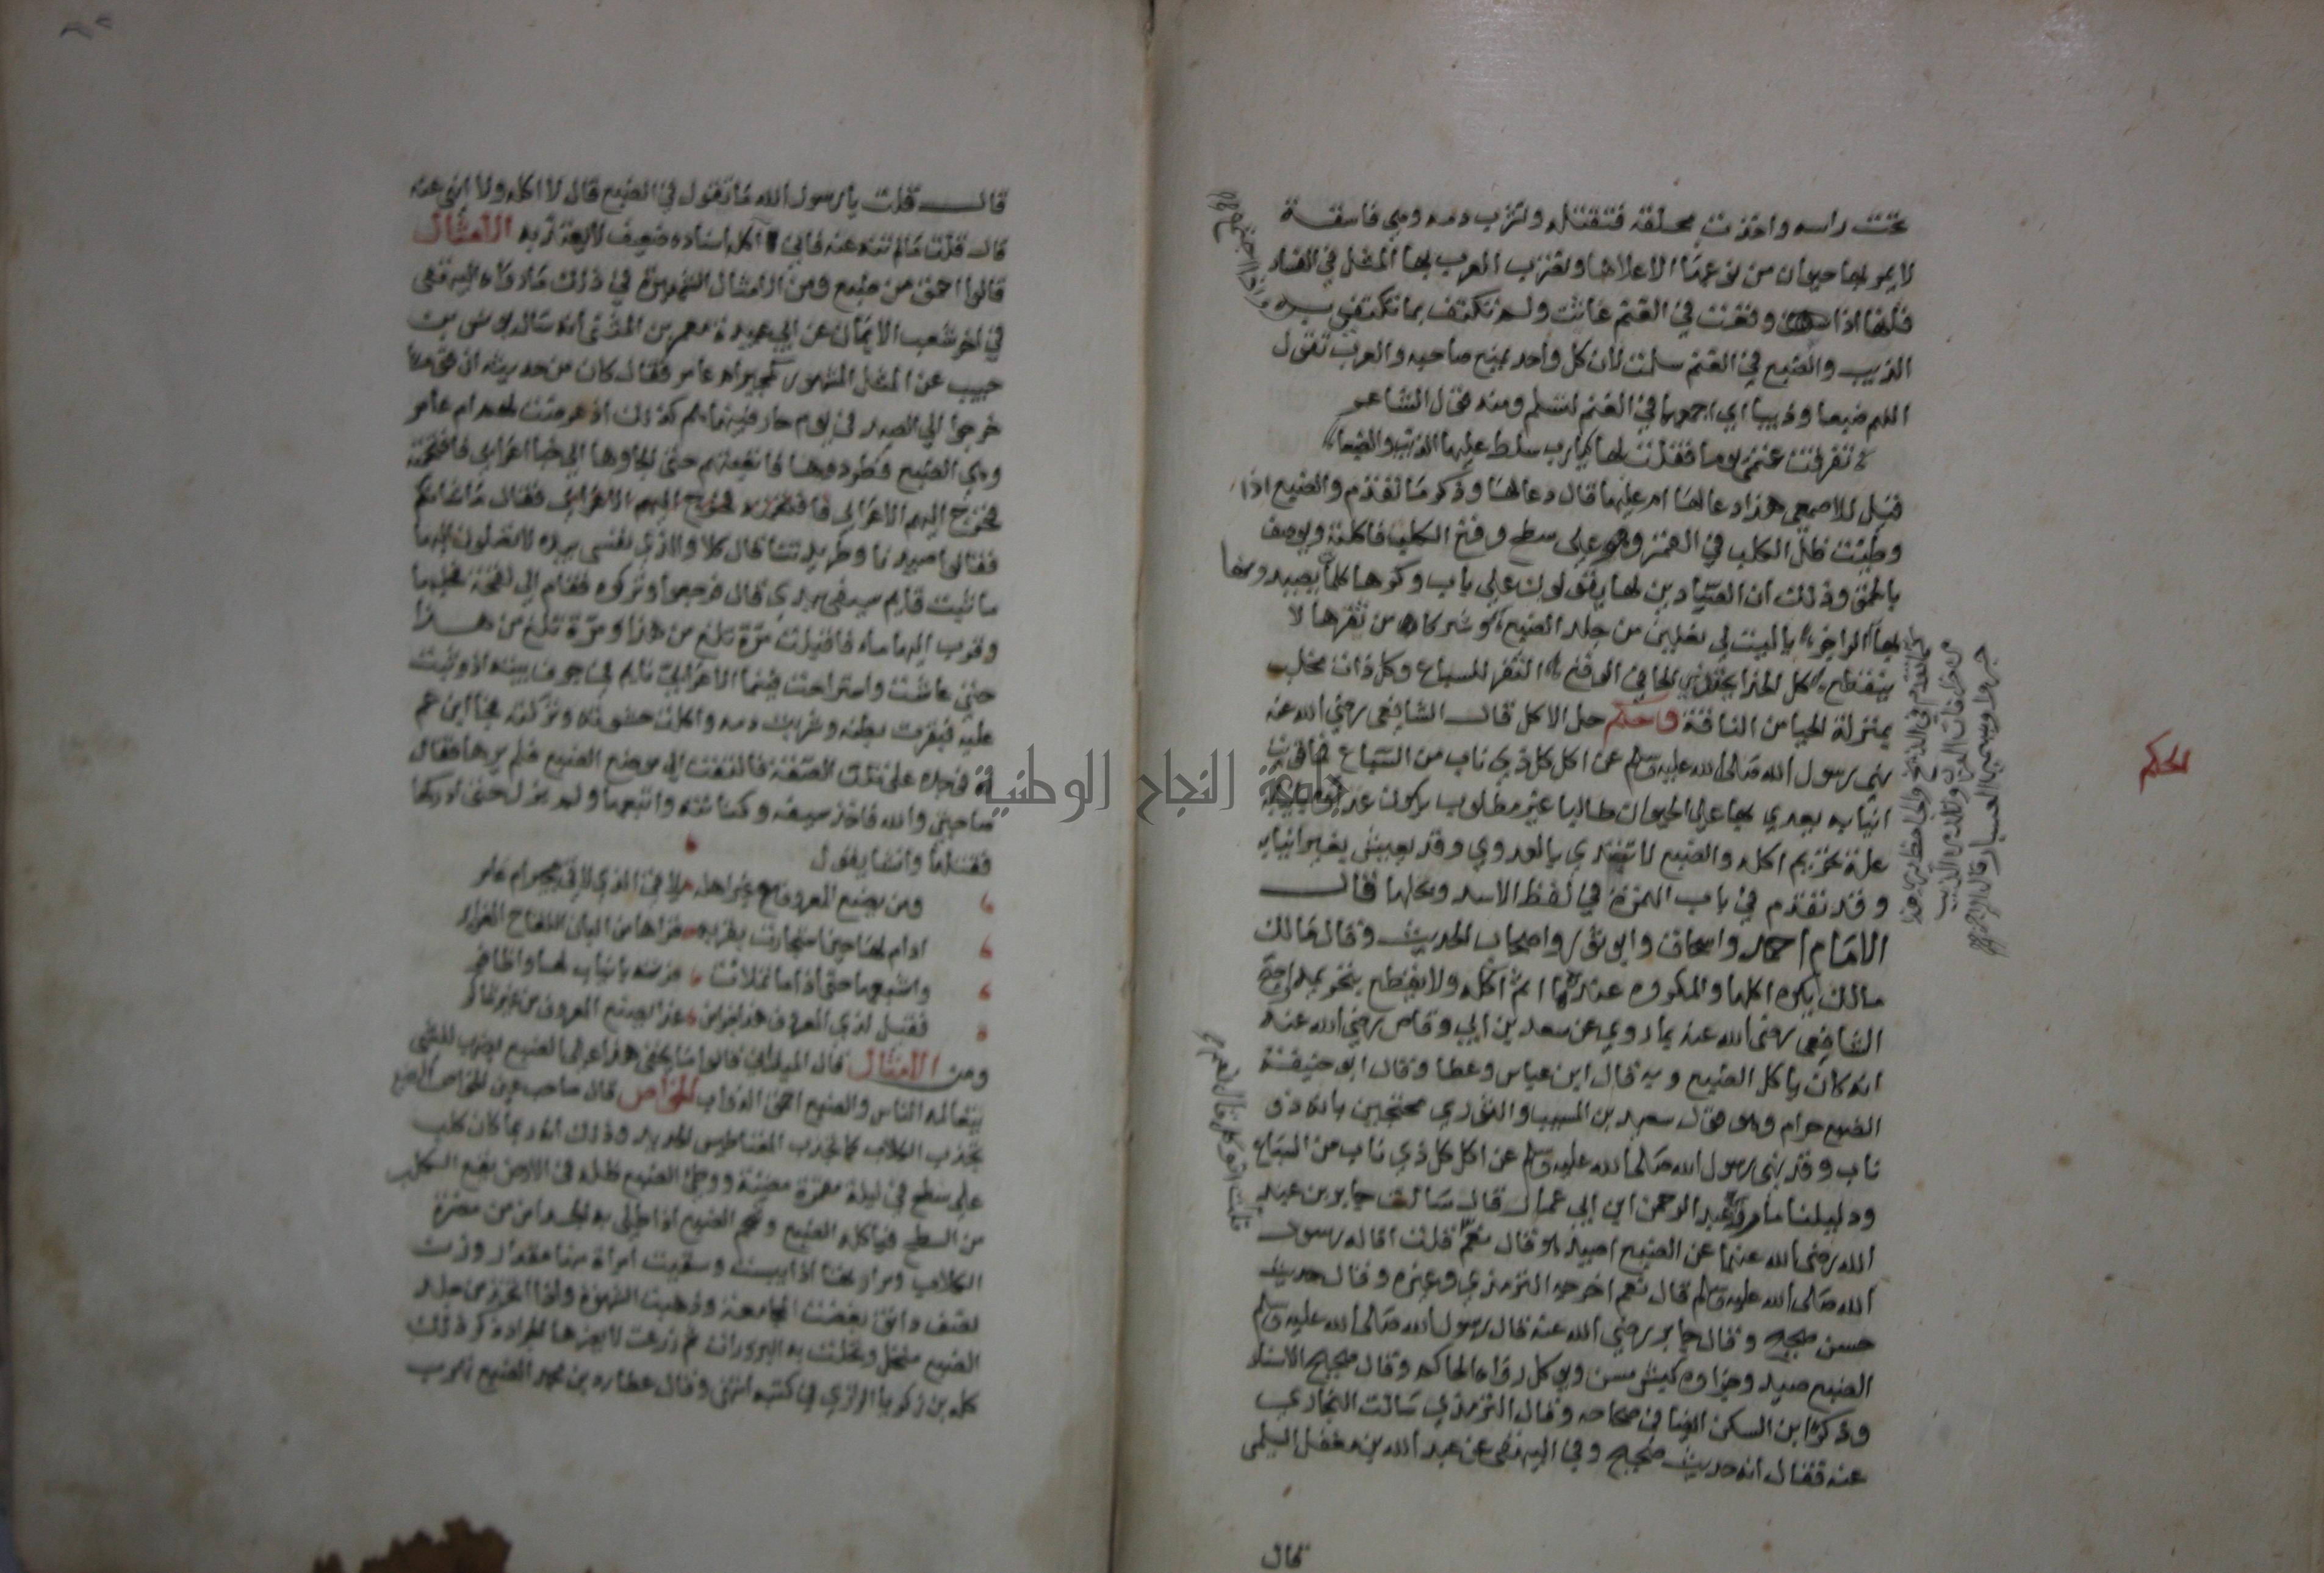 تحت راسه واخذت بحلقه فتقتله وتشرب دمه وهي فاسقة
لا يمر بها حيوان من نوعها الا علاها وتضرب العرب بها المثل في الفساد
فانها اذا وقعت في الغنم عاثت ولم تكتف بما يكتفي به
الذيب والضبع في الغنم سلمت لان كل واحد يمنع صاحبه والعرب تقول
اللهم ضبعا وذيبا اي اجمعهما في الغنم لتسلم ومنه قول الشاعر
تفرقت غنمي يوما فقلت لها يا رب سلط عليها الذيب والضبعا
قيل للاصمعي هذا دعا لها ام عليها قال دعا لها وذكر ما تقدم والضبع اذا
وطيت ظل الكلب في القمر وهو على سطح وقع الكلب فاكلته ويوصف
بالحمق وذلك ان الصيادين لها يقولون على باب وكرها كلما يصيدونها
بها الراجز يا ليت لي نعلين من جلد الضبع وشركا من ثفرها لا
ينقطع كل الحذا يحتذي الحافي الوقع الثفر للسباع وكل ذات مخلب
بمنزلة الحيا من الناقة والحكم حل الاكل قال الشافعي رضي الله عنه
نهى رسول الله صلى الله عليه وسلم عن اكل كل ذي ناب من السباع فما قويت
انيابه يعدي بها على الحيوان طالبا غير مطلوب يكون عداوه بانيابه
علة تحريم اكله والضبع لا تغتذي بالعدوي وقد يعيش بغير انيابه
وقد تقدم في باب الهمزة في لفظ الاسد وبحلها قال
الامام احمد واسحاق وابو ثور واصحاب الحديث وقال مالك
مالك يكره اكلها والمكروه عنده ما اثم اكله ولا يقطع بتحريمه احتج
الشافعي رضي الله عنه بما روي عن سعد بن ابي وقاص رضي الله عنه
انه كان ياكل الضبع وبه قال ابن عباس وعطا وقال ابو حنيفة
الضبع حرام وهو قول سعيد بن المسيب والثوري محتجين بانه ذو
ناب وقد نهى رسول الله صلى الله عليه وسلم عن اكل كل ذي ناب من السباع
ودليلنا ما روى عبد الرحمن ابن ابي عمار قال سالت جابر بن عبد
الله رضي الله عنهما عن الضبع اصيد هو قال نعم قلت اقاله رسول
الله صلى الله عليه وسلم قال نعم اخرجه الترمذي وغيره وقال حديث
حسن صحيح وقال جابر رضي الله عنه قال رسول الله صلى الله عليه وسلم
الضبع صيد وجزاوه كبش مسن ويوكل رواه الحاكم وقال صحيح الاسناد
وذكره ابن السكن ايضا في صحاحه وقال الترمذي سالت البخاري
عنه فقال انه حديث صحيح وفي البيهقي عن عبد الله بن مغفل السلمي
قال
الحكم
قال قلت يا رسول الله ما تقول في الضبع قال لا اكله ولا انهى عنه
قال قلت ما لم تنه عنه فاني اكله اسناده ضعيف لا يعتد به الامثال
قالوا احمق من ضبع ومن الامثال الشهيرة في ذلك ما رواه البيهقي
في اخر شعب الايمان عن ابي عبيدة معمر بن المثنى انه سال يونس بن
حبيب عن المثل المشهور كمجير ام عامر فقال كان من حديثه ان قوما
خرجوا الي الصيد في يوم حار فبينما هم كذلك اذ عرضت لهم ام عامر
وهي الضبع فطردوها فاتبعتهم حتى الجاوها الي خبا اعرابي فاقتحمته
فخرج اليهم الاعرابي فقال ما شانكم
فقالوا صيدنا وطريدتنا قال كلا والذي نفسي بيده لا تصلون اليها
ما ثبت قايم سيفي بيدي قال فرجعوا وتركوه فقام الي لقحة فحلبها
وقرب اليها ماء فاقبلت مرة تلغ من هذا ومرة تلغ من هذا
حتى عاشت واستراحت فبينما الاعرابي نايم في جوف بيته اذ وثبت
عليه فبقرت بطنه وشربت دمه واكلت حشوته وتركته فجا ابن عم
له فوجده على تلك الصفة فالتفت الي موضع الضبع فلم يرها فقال
صاحبتي والله فاخذ سيفه وكنانته واتبعها ولم يزل حتى ادركها
فقتلها وانشا يقول
ومن يصنع المعروف مع غير اهله يلاقي الذي لاقى مجير ام عامر
ادام لها حين استجارت بقربه قراها من البان اللقاح الغزاير
واشبعها حتى اذا ما تملات فرته بانياب لها واظافر
فقل لذوي المعروف هذا جزاء من غدا يصنع المعروف مع غير شاكر
ومن الامثال قال الميداني قالوا ما يخفى هذا على الضبع يضرب للشي
يتعالمه الناس والضبع احمق الدواب الخواص قال صاحب عين الخواص الضبع
تجذب الكلاب كما يجذب المغناطيس الحديد وذلك انه ربما كان كلب
على سطح في ليلة مقمرة مضيئة ووطي الضبع ظله في الارض يقع الكلب
من السطح فياكله الضبع وشحم الضبع اذا طلي به الجسد امن من مضرة
الكلاب ومرارتها اذا يبست وسقيت امراة منها مقدار وزن
نصف دانق بغضت المجامعة وذهبت الشهوة واذا اتخذ من جلد
الضبع منخل ونخلت به البزورات ثم زرعت لا يضرها الجراد ذكر ذلك
كله بن زكريا الرازي في كتبه انتهى وقال عطارد بن محمد الضبع تهرب
جامعة النجاح الوطنية